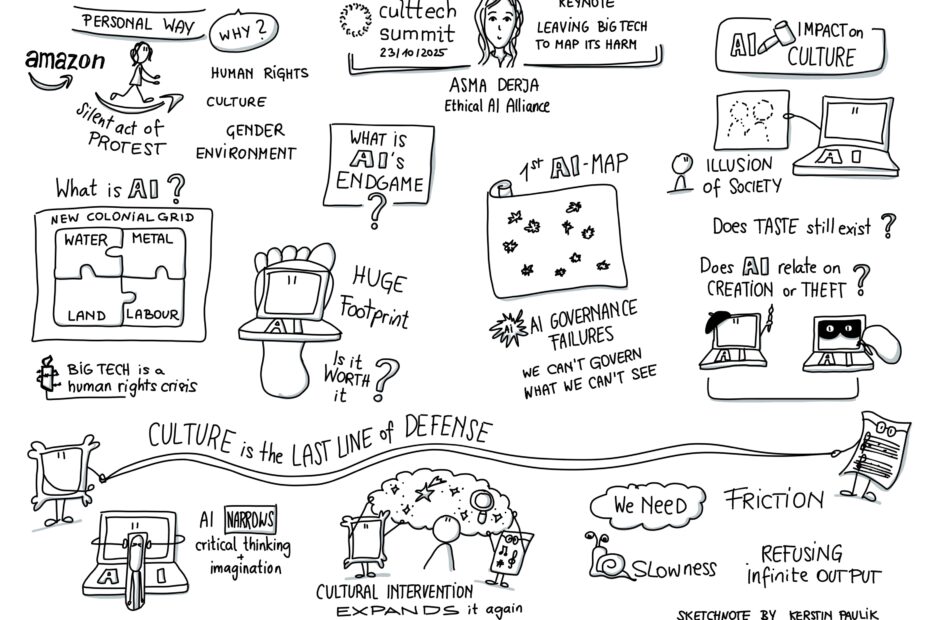 PERSONAL WAY
WHY?
amazon
Silent act of
PROTEST
HUMAN RIGHTS
CULTURE
GENDER
ENVIRONMENT
culttech
summit
23/10/2025
KEYNOTE
LEAVING BIG TECH
TO MAP ITS HARM
ASMA DERJA
Ethical AI Alliance
AI IMPACT on
CULTURE
AI
ILLUSION
of SOCIETY
Does TASTE still exist?
Does AI relate on
CREATION or THEFT?
AI
AI
What is AI?
NEW COLONIAL GRID
WATER METAL
LAND LABOUR
BIG TECH is a
human rights crisis
WHAT IS
AI's
ENDGAME
?
AI
HUGE
Footprint
Is it
WORTH
it?
1st AI-MAP
AI
AI GOVERNANCE
FAILURES
WE CAN'T GOVERN
WHAT WE CAN'T SEE
CULTURE is the LAST LINE of DEFENSE
AI
AI NARROWS
critical thinking
+
imagination
CULTURAL INTERVENTION
EXPANDS it again
We NEED
FRICTION
SLOWNESS
REFUSING
infinite OUTPUT
SKETCHNOTE BY KERSTIN PAULIK